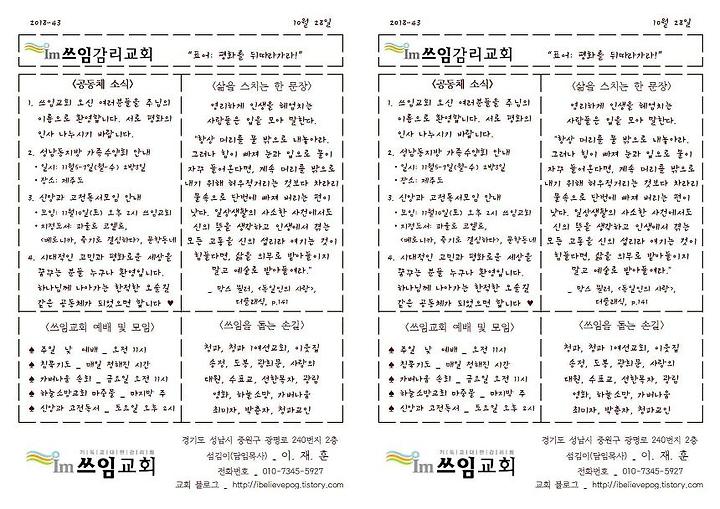 2018-43
10월 28일
Im 쓰임감리교회
"표어: 평화를 뒤따라가라!"
<공동체 소식>
1. 쓰임교회 오신 여러분들을 주님의
이름으로 환영합니다. 서로 평화의
인사 나누시기 바랍니다.
2. 성남동지방 가족수양회 안내
• 일시: 11월5-7일(월-수) 2박3일
• 장소: 제주도
3. 신앙과 고전독서모임 안내
• 모임: 11월10일(토) 오후 2시 쓰임교회
• 지정도서: 파울로 코엘료,
<베로니카, 죽기로 결심하다>, 문학동네
4. 시대적인 고민과 평화로운 세상을
꿈꾸는 분들 누구나 환영입니다.
하나님께 나아가는 한적한 오솔길
같은 공동체가 되었으면 합니다 ♥
<삶을 스치는 한 문장>
영리하게 인생을 헤엄치는
사람들은 입을 모아 말한다.
"항상 머리를 물 밖으로 내놓아라.
그러나 힘이 빠져 눈과 입으로 물이
자꾸 들어온다면, 계속 머리를 밖으로
내기 위해 허우적거리는 것보다 차라리
물속으로 단번에 빠져 버리는 편이
낫다. 일상생활의 사소한 사건에서도
신의 뜻을 생각하고 인생에서 겪는
모든 고통을 신의 섭리라 여기는 것이
힘들다면, 삶을 의무로 받아들이지
말고 예술로 받아들여라."
_ 막스 뮐러, <독일인의 사랑>,
더클래식, p.141
<쓰임교회 예배 및 모임>
♠ 주일 낮 예배 _ 오전 11시
♠ 침묵기도 _ 매일 정해진 시간
♠ 가버나움 속회 _ 금요일 오전 11시
♠ 하늘소망교회 마중물 _ 마지막 주
♠ 신앙과 고전독서 _ 토요일 오후 2시
<쓰임을 돕는 손길>
청파, 청파 1여선교회, 이웃집
송정, 도봉, 광희문, 사랑의
대원, 수표교, 선한목자, 광림
영화, 하늘소망, 가버나움
최미자, 박춘자, 청파교인
기독교대한감리회
Im 쓰임교회
경기도 성남시 중원구 광명로 240번지 2층
섬김이(담임목사) _ 이. 재. 훈
전화번호 _ 010-7345-5927
교회 블로그 _ http://ibelievepog.tistory.com
2018-43
10월 28일
Im 쓰임감리교회
"표어: 평화를 뒤따라가라!"
<공동체 소식>
1. 쓰임교회 오신 여러분들을 주님의
이름으로 환영합니다. 서로 평화의
인사 나누시기 바랍니다.
2. 성남동지방 가족수양회 안내
• 일시: 11월5-7일(월-수) 2박3일
• 장소: 제주도
3. 신앙과 고전독서모임 안내
• 모임: 11월10일(토) 오후 2시 쓰임교회
• 지정도서: 파울로 코엘료,
<베로니카, 죽기로 결심하다>, 문학동네
4. 시대적인 고민과 평화로운 세상을
꿈꾸는 분들 누구나 환영입니다.
하나님께 나아가는 한적한 오솔길
같은 공동체가 되었으면 합니다 ♥
<삶을 스치는 한 문장>
영리하게 인생을 헤엄치는
사람들은 입을 모아 말한다.
"항상 머리를 물 밖으로 내놓아라.
그러나 힘이 빠져 눈과 입으로 물이
자꾸 들어온다면, 계속 머리를 밖으로
내기 위해 허우적거리는 것보다 차라리
물속으로 단번에 빠져 버리는 편이
낫다. 일상생활의 사소한 사건에서도
신의 뜻을 생각하고 인생에서 겪는
모든 고통을 신의 섭리라 여기는 것이
힘들다면, 삶을 의무로 받아들이지
말고 예술로 받아들여라."
_ 막스 뮐러, <독일인의 사랑>,
더클래식, p.141
<쓰임교회 예배 및 모임>
♠ 주일 낮 예배 _ 오전 11시
♠ 침묵기도 _ 매일 정해진 시간
♠ 가버나움 속회 _ 금요일 오전 11시
♠ 하늘소망교회 마중물 _ 마지막 주
♠ 신앙과 고전독서 _ 토요일 오후 2시
<쓰임을 돕는 손길>
청파, 청파 1여선교회, 이웃집
송정, 도봉, 광희문, 사랑의
대원, 수표교, 선한목자, 광림
영화, 하늘소망, 가버나움
최미자, 박춘자, 청파교인
기독교대한감리회
Im 쓰임교회
경기도 성남시 중원구 광명로 240번지 2층
섬김이(담임목사) _ 이. 재. 훈
전화번호 _ 010-7345-5927
교회 블로그 _ http://ibelievepog.tistory.com